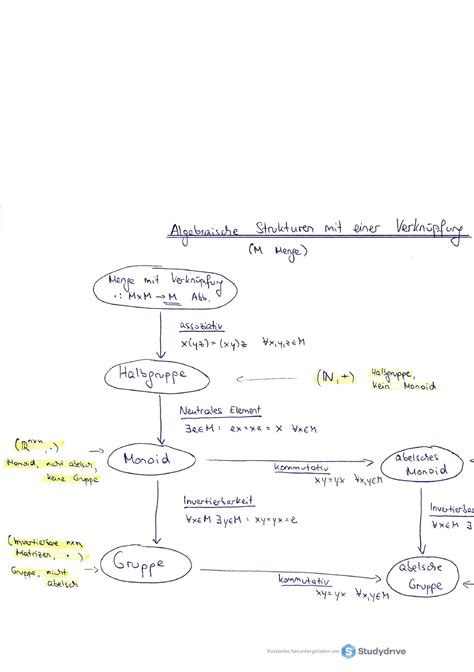 Algebraische Strukturen mit einer Verknüpfung
(M Menge)
Menge mit Verknüpfung
·: M×M → M Abb.
assoziativ
x(yz) = (xy)z ∀x,y,z∈M
Halbgruppe
(ℕ,+) Halbgruppe,
kein Monoid
Neutrales Element
∃e∈M : ex = xe = x ∀x∈M
(ℝⁿˣⁿ, ·)
Monoid, nicht abelsch,
keine Gruppe
Monoid
kommutativ
xy = yx ∀x,y∈M
abelsches
Monoid
Invertierbarkeit
∀x∈M ∃y∈M : xy = yx = e
Invertierba
∀x∈M ∃
(Invertierbare n×n
Matrizen, ·)
Gruppe, nicht
abelsch
Gruppe
kommutativ
xy = yx ∀x,y∈M
abelsche
Gruppe
Kostenlos heruntergeladen von Studydrive